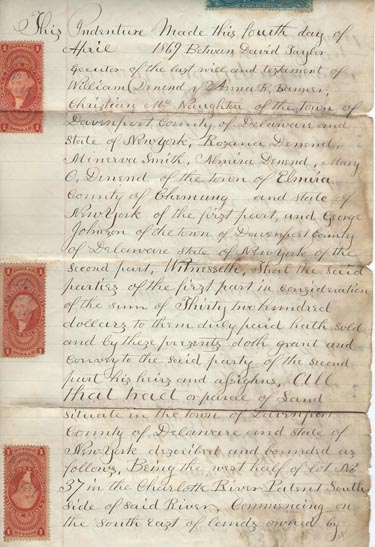 This Indenture Made this fourth day of
April 1869 Between David Taylor
Executor of the last will and testament of
William Denend & Anna E.
Christian McNaughten of the town of
Davenport County of Delaware and
State of New York, Roxana Denend,
Minerva Smith, Almira Denend, Mary
O. Denend of the town of Elmira
County of Chemung and State of
New York of the first part, and George
Johnson of the town of Davenport County
of Delaware State of New York of the
second part, Witnesseth, that the said
parties of the first part in consideration
of the sum of Thirty two hundred
dollars to them duly paid hath sold
and by these presents doth grant and
convey to the said party of the second
part his heirs and assigns, All
that tract or parcele of Land
situate in the town of Davenport
County of Delaware and state of
New York described and bounded as
follows, Being the west half of lot No
37 in the Charlotte River Patent South
Side of said River, Commencing on
the South East of lands owned by